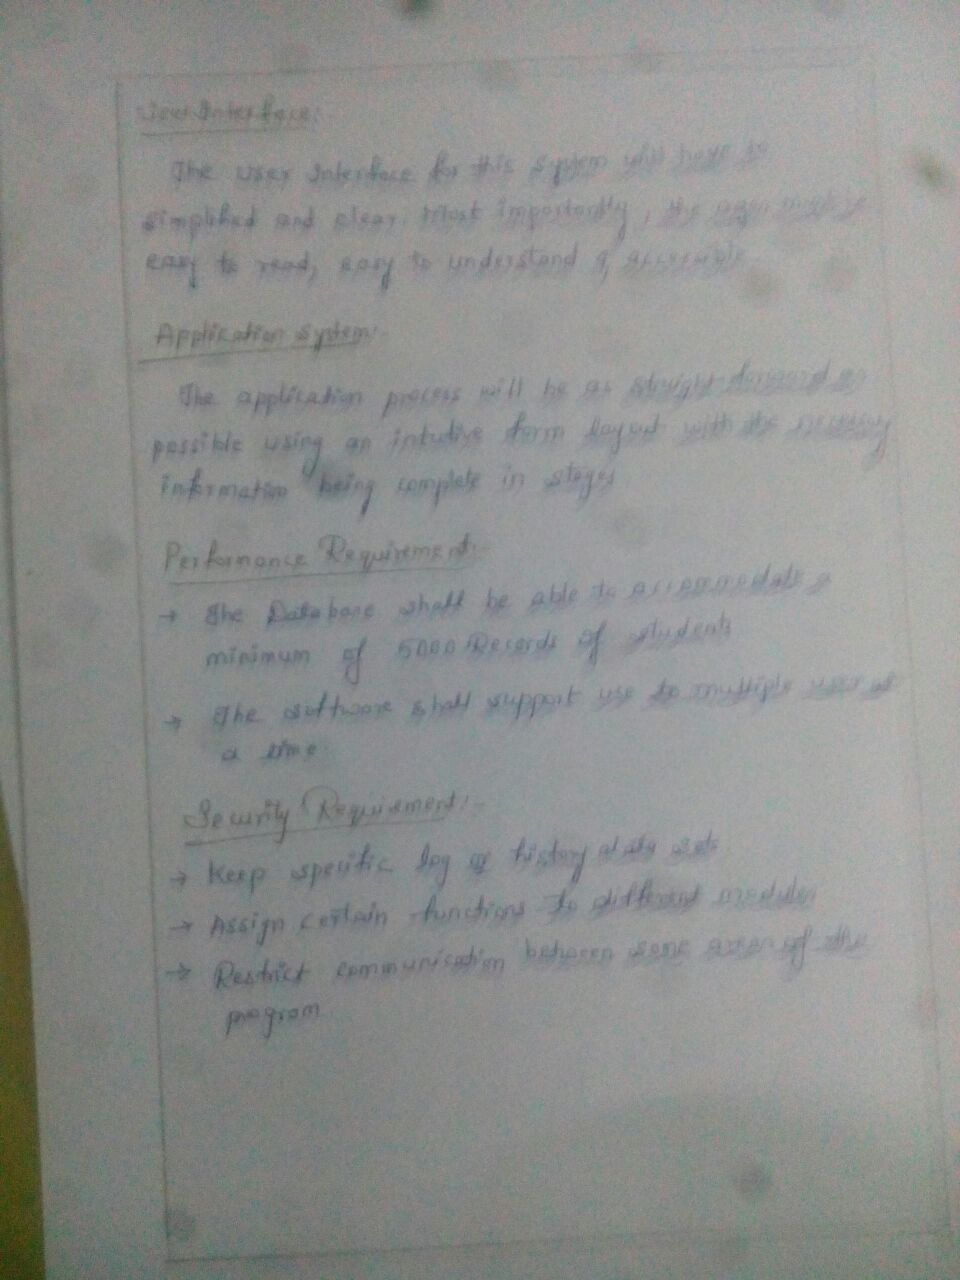 User Interface:
The user Interface for this system will have to
simplified and clear. Most importantly, the ages must be
easy to read, easy to understand & accessible
Application System:-
The application process will be as straight-forward as
possible using an intutive form layout with the necessary
information being complete in stages
Performance Requirement:-
→ The Database shall be able to accommodate a
minimum of 5000 Records of students
→ The software shall support use to multiple user at
a time
Security Requirement:-
→ Keep specific log or history data sets
→ Assign certain functions to different modules
→ Restrict communication between some areas of the
program